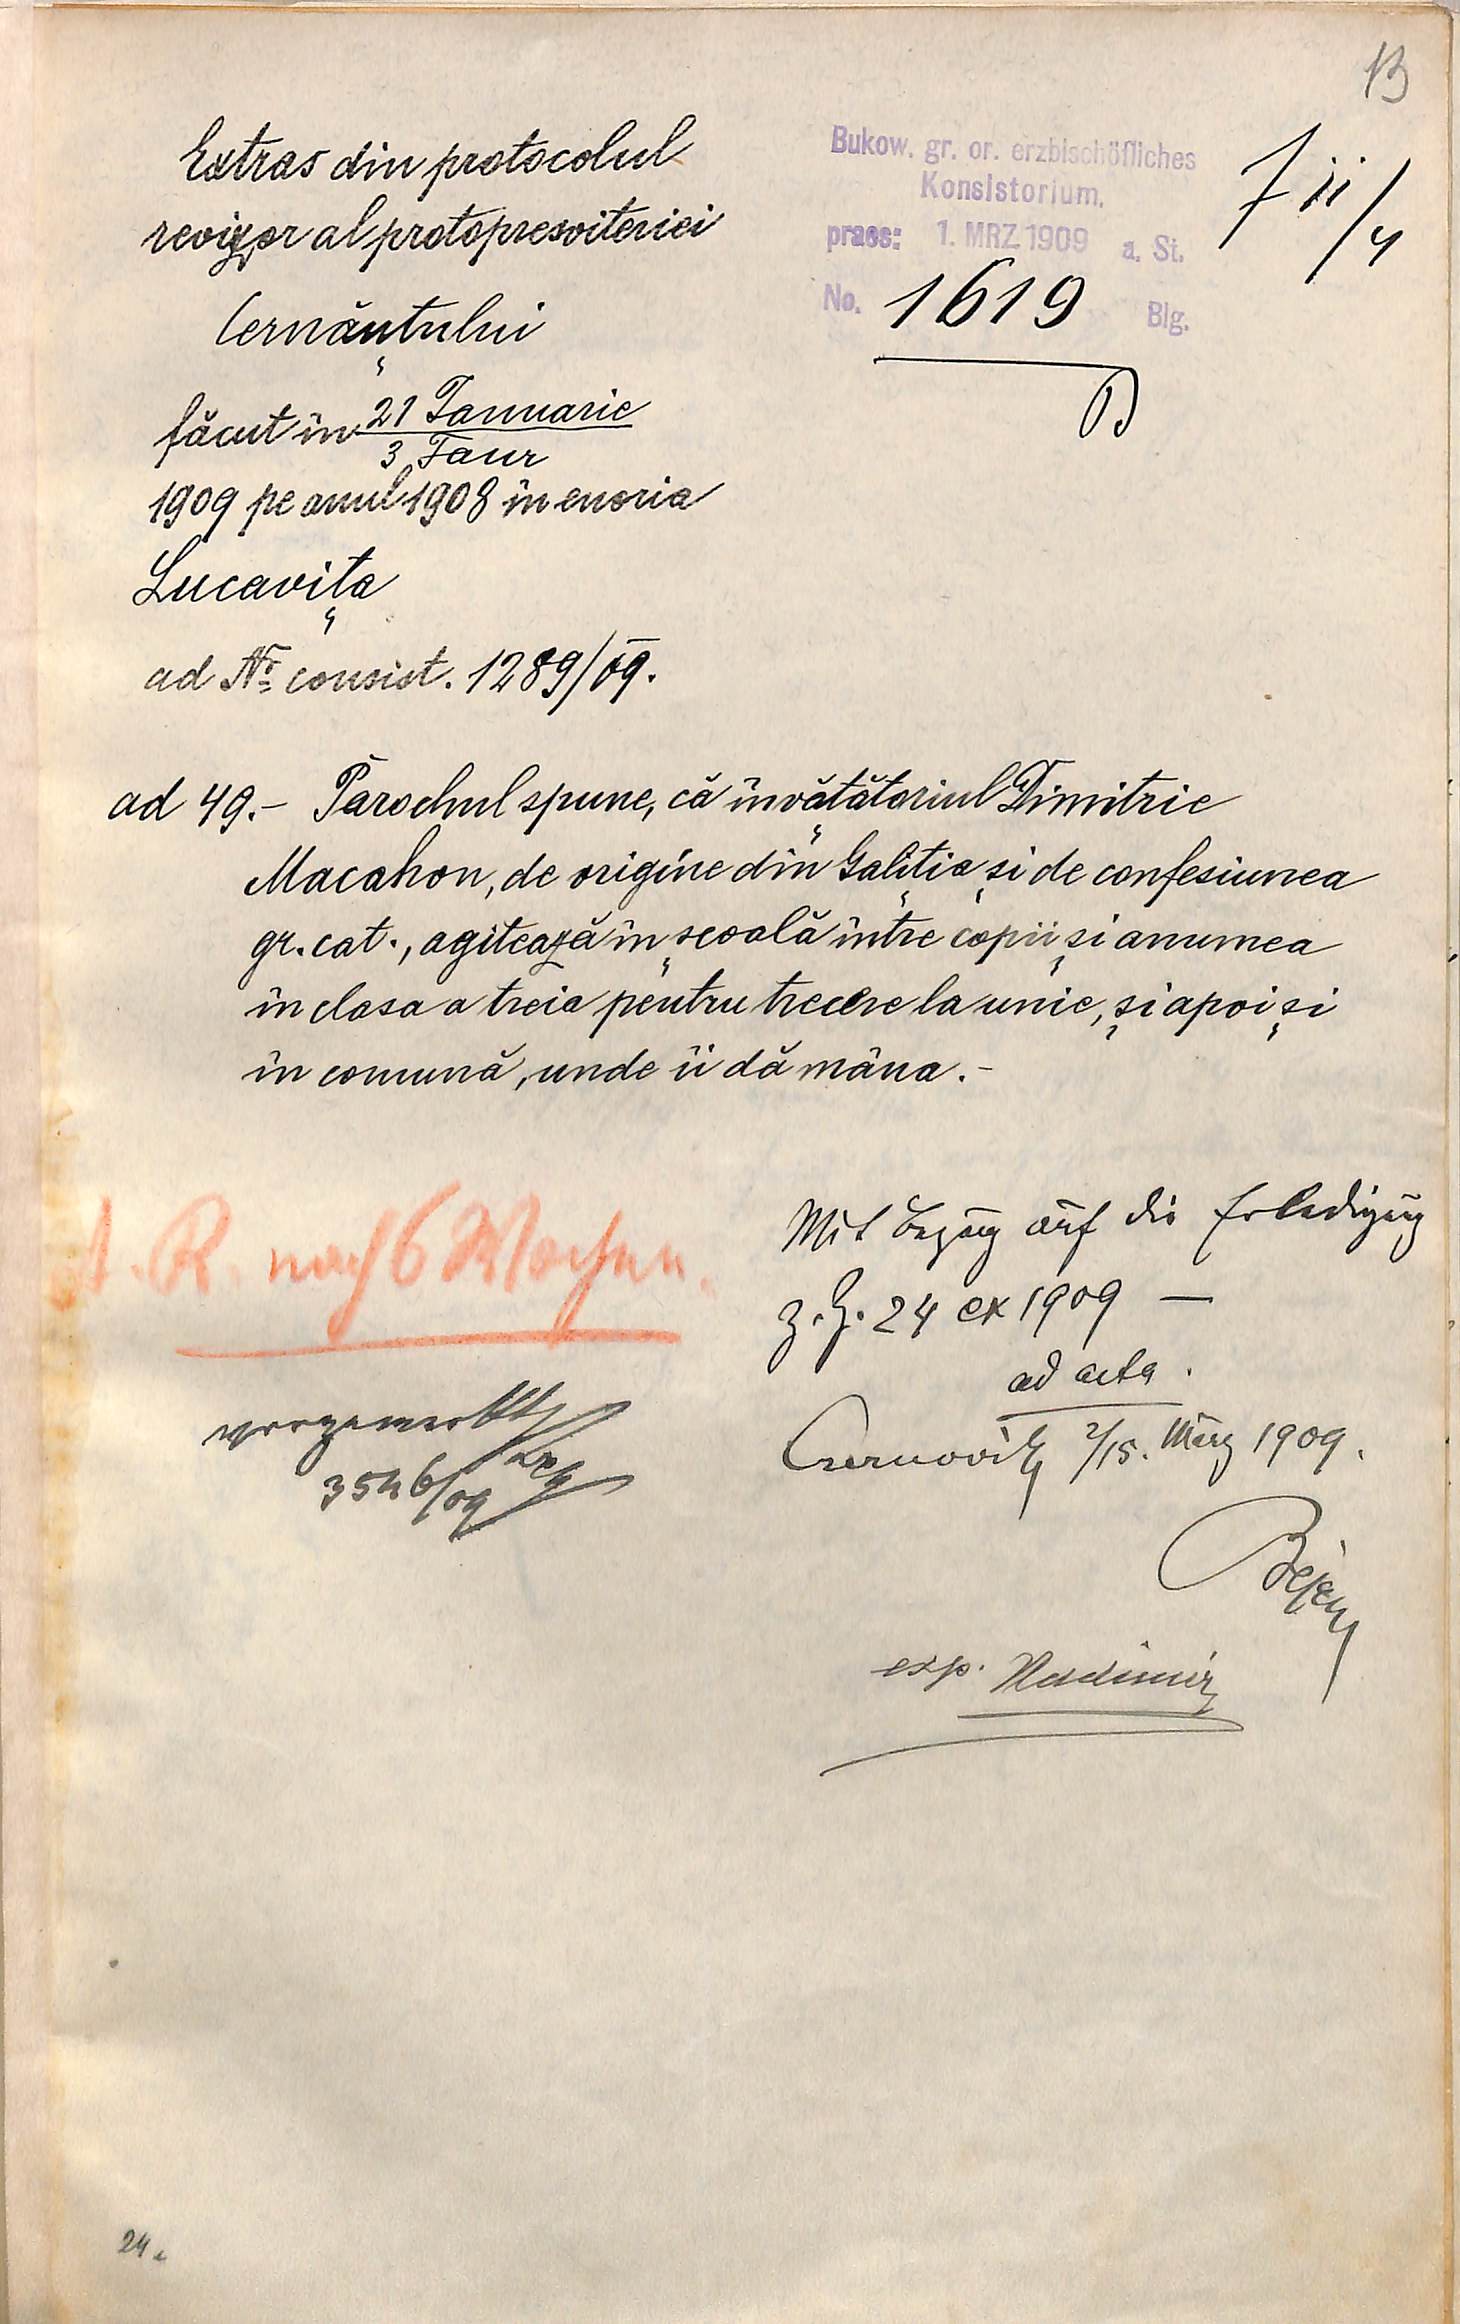 13
Extras din protocolul
revizor al protopresviteriei
Cernăuțului
făcut în 21 Ianuarie
3 Faur
1909 pe anul 1908 în enoria
Lucavița
ad No consist. 1289/09.
Bukow. gr. or. erzbischöfliches
Konsistorium.
praes: 1. MRZ. 1909 a. St.
No. 1619 Blg.
ad 49.- Parochul spune, că învățătoriul Dimitrie
Macahon, de origine din Galiția și de confesiunea
gr. cat., agitează în școală între copii și anumea
în clasa a treia pentru trecere la unie, și apoi și
în comună, unde îi dă mâna.-
R nach 6 Wochen.
vorgemerkt
3546/09
Mit Bezug auf die Erledigung
z. Z. 24 ex 1909 —
ad acta.
Czernovitz 2/15. März 1909.
Bejan
exp. Vladimir
24.